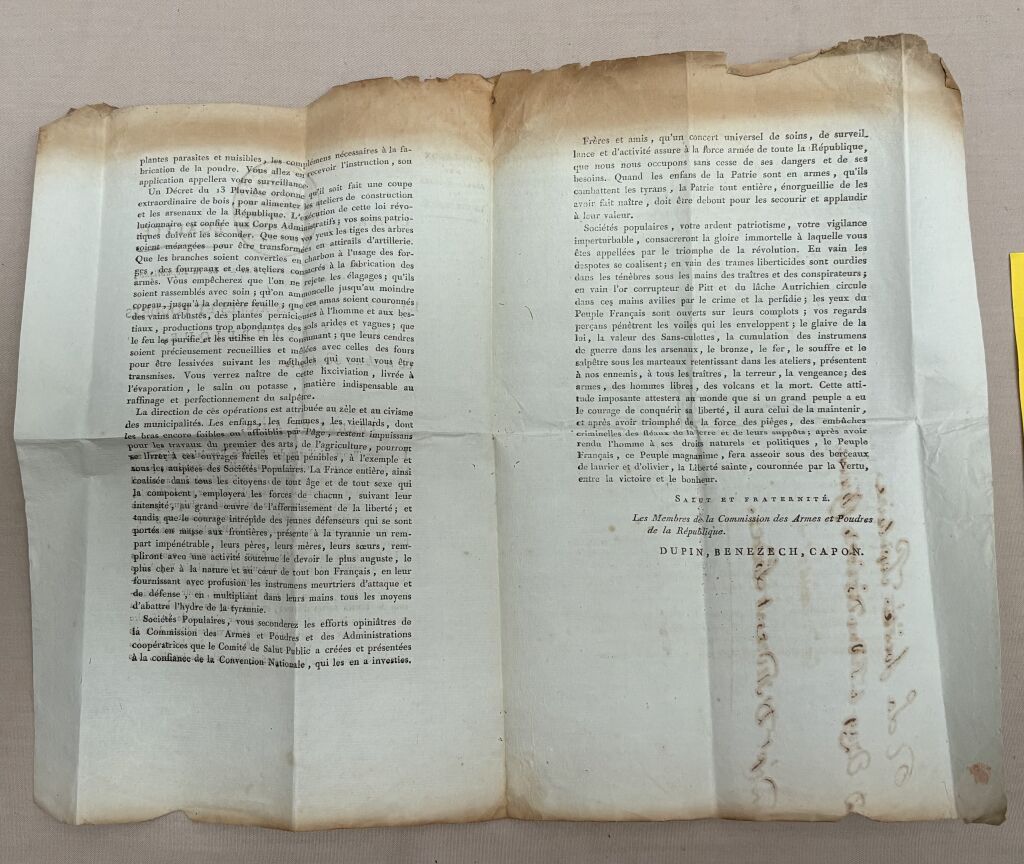 plantes parasites et nuisibles, les complémens nécessaires à la fa-
brication de la poudre. Vous allez en recevoir l'instruction, son
application appellera votre surveillance.
Un Décret du 13 Pluviôse ordonne qu'il soit fait une coupe
extraordinaire de bois, pour alimenter les ateliers de construction
et les arsenaux de la République. L'exécution de cette loi révo-
lutionnaire est confiée aux Corps Administratifs; vos soins patrio-
tiques doivent les seconder. Que sous vos yeux les tiges des arbres
soient ménagées pour être transformées en attirails d'artillerie.
Que les branches soient converties en charbon à l'usage des for-
ges, des fourneaux et des ateliers consacrés à la fabrication des
armes. Vous empêcherez que l'on ne rejete les élagages; qu'ils
soient rassemblés avec soin; qu'on ammoncelle jusqu'au moindre
copeau, jusqu'à la dernière feuille; que ces amas soient couronnés
des vains arbustes, des plantes pernicieuses à l'homme et aux bes-
tiaux, productions trop abondantes des sols arides et vagues; que
le feu les purifie et les utilise en les consumant; que leurs cendres
soient précieusement recueillies et mêlées avec celles des fours
pour être lessivées suivant les méthodes qui vont vous être
transmises. Vous verrez naître de cette lixciviation, livrée à
l'évaporation, le salin ou potasse, matière indispensable au
raffinage et perfectionnement du salpêtre.
La direction de ces opérations est attribuée au zèle et au civisme
des municipalités. Les enfans, les femmes, les vieillards, dont
les bras encore foibles ou affoiblis par l'âge, restent impuissans
pour les travaux du premier des arts, de l'agriculture, pourront
se livrer à ces ouvrages faciles et peu pénibles, à l'exemple et
sous les auspices des Sociétés Populaires. La France entière, ainsi
coalisée dans tous les citoyens de tout âge et de tout sexe qui
la composent, employera les forces de chacun, suivant leur
intensité, au grand œuvre de l'affermissement de la liberté; et
tandis que le courage intrépide des jeunes défenseurs qui se sont
portés en masse aux frontières, présente à la tyrannie un rem-
part impénétrable, leurs pères, leurs mères, leurs sœurs, rem-
pliront avec une activité soutenue le devoir le plus auguste, le
plus cher à la nature et au cœur de tout bon Français, en leur
fournissant avec profusion les instrumens meurtriers d'attaque et
de défense, en multipliant dans leurs mains tous les moyens
d'abattre l'hydre de la tyrannie.
Sociétés Populaires, vous seconderez les efforts opiniâtres de
la Commission des Armes et Poudres et des Administrations
coopératrices que le Comité de Salut Public a créées et présentées
à la confiance de la Convention Nationale, qui les en a investies.
Frères et amis, qu'un concert universel de soins, de surveil-
lance et d'activité assure à la force armée de toute la République,
que nous nous occupons sans cesse de ses dangers et de ses
besoins. Quand les enfans de la Patrie sont en armes, qu'ils
combattent les tyrans, la Patrie tout entière, énorgueillie de les
avoir fait naître, doit être debout pour les secourir et applaudir
à leur valeur.
Sociétés populaires, votre ardent patriotisme, votre vigilance
imperturbable, consacreront la gloire immortelle à laquelle vous
êtes appellées par le triomphe de la révolution. En vain les
despotes se coalisent; en vain des trames liberticides sont ourdies
dans les ténèbres sous les mains des traîtres et des conspirateurs;
en vain l'or corrupteur de Pitt et du lâche Autrichien circule
dans ces mains avilies par le crime et la perfidie; les yeux du
Peuple Français sont ouverts sur leurs complots; vos regards
perçans pénètrent les voiles qui les enveloppent; le glaive de la
loi, la valeur des Sans-culottes, la cumulation des instrumens
de guerre dans les arsenaux, le bronze, le fer, le souffre et le
salpêtre sous les marteaux retentissant dans les ateliers, présentent
à nos ennemis, à tous les traîtres, la terreur, la vengeance; des
armes, des hommes libres, des volcans et la mort. Cette atti-
tude imposante attestera au monde que si un grand peuple a eu
le courage de conquérir sa liberté, il aura celui de la maintenir,
et après avoir triomphé de la force des pièges, des embûches
criminelles des fléaux de la terre et de leurs suppôts; après avoir
rendu l'homme à ses droits naturels et politiques, le Peuple
Français, ce Peuple magnanime, fera asseoir sous des berceaux
de laurier et d'olivier, la Liberté sainte, couronnée par la Vertu,
entre la victoire et le bonheur.
SALUT ET FRATERNITÉ.
Les Membres de la Commission des Armes et Poudres
de la République.
DUPIN, BENEZECH, CAPON.